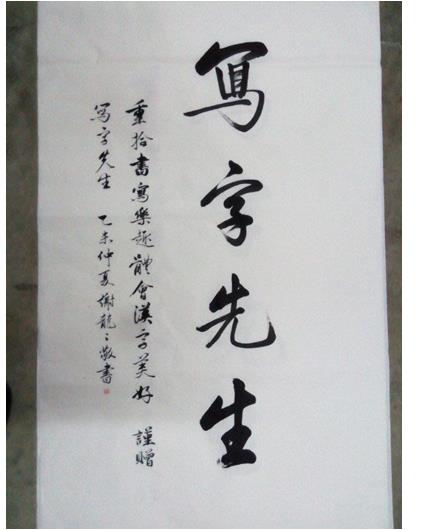 寫字先生
重拾書寫樂趣體會漢字美好 謹贈
寫字先生 乙未仲夏謝龍龍敬書